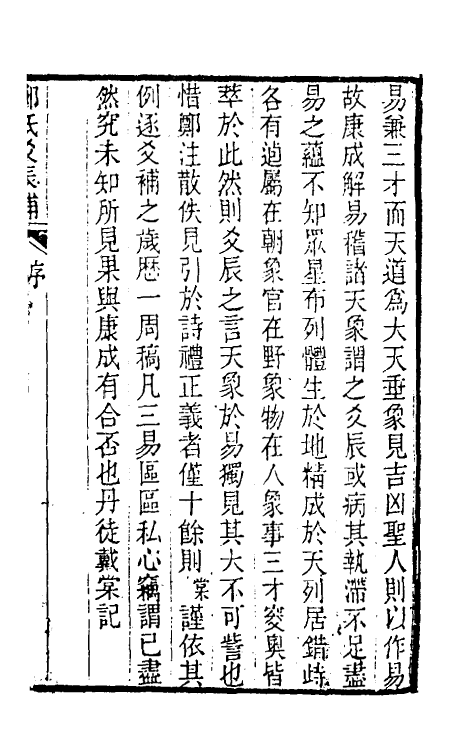 易兼三才而天道爲大天垂象見吉凶聖人則以作易
故康成解易稽諸天象謂之爻辰或病其執滯不足盡
易之蘊不知眾星布列體生於地精成於天列居錯峙
各有逌屬在朝象官在野象物在人象事三才窔奧皆
萃於此然則爻辰之言天象於易獨見其大不可訾也
惜鄭注散佚見引於詩禮正義者僅十餘則棠謹依其
例逐爻補之歲歷一周稿凡三易區區私心竊謂已盡
然究未知所見果與康成有合否也丹徒戴棠記
鄭氏爻辰補 序